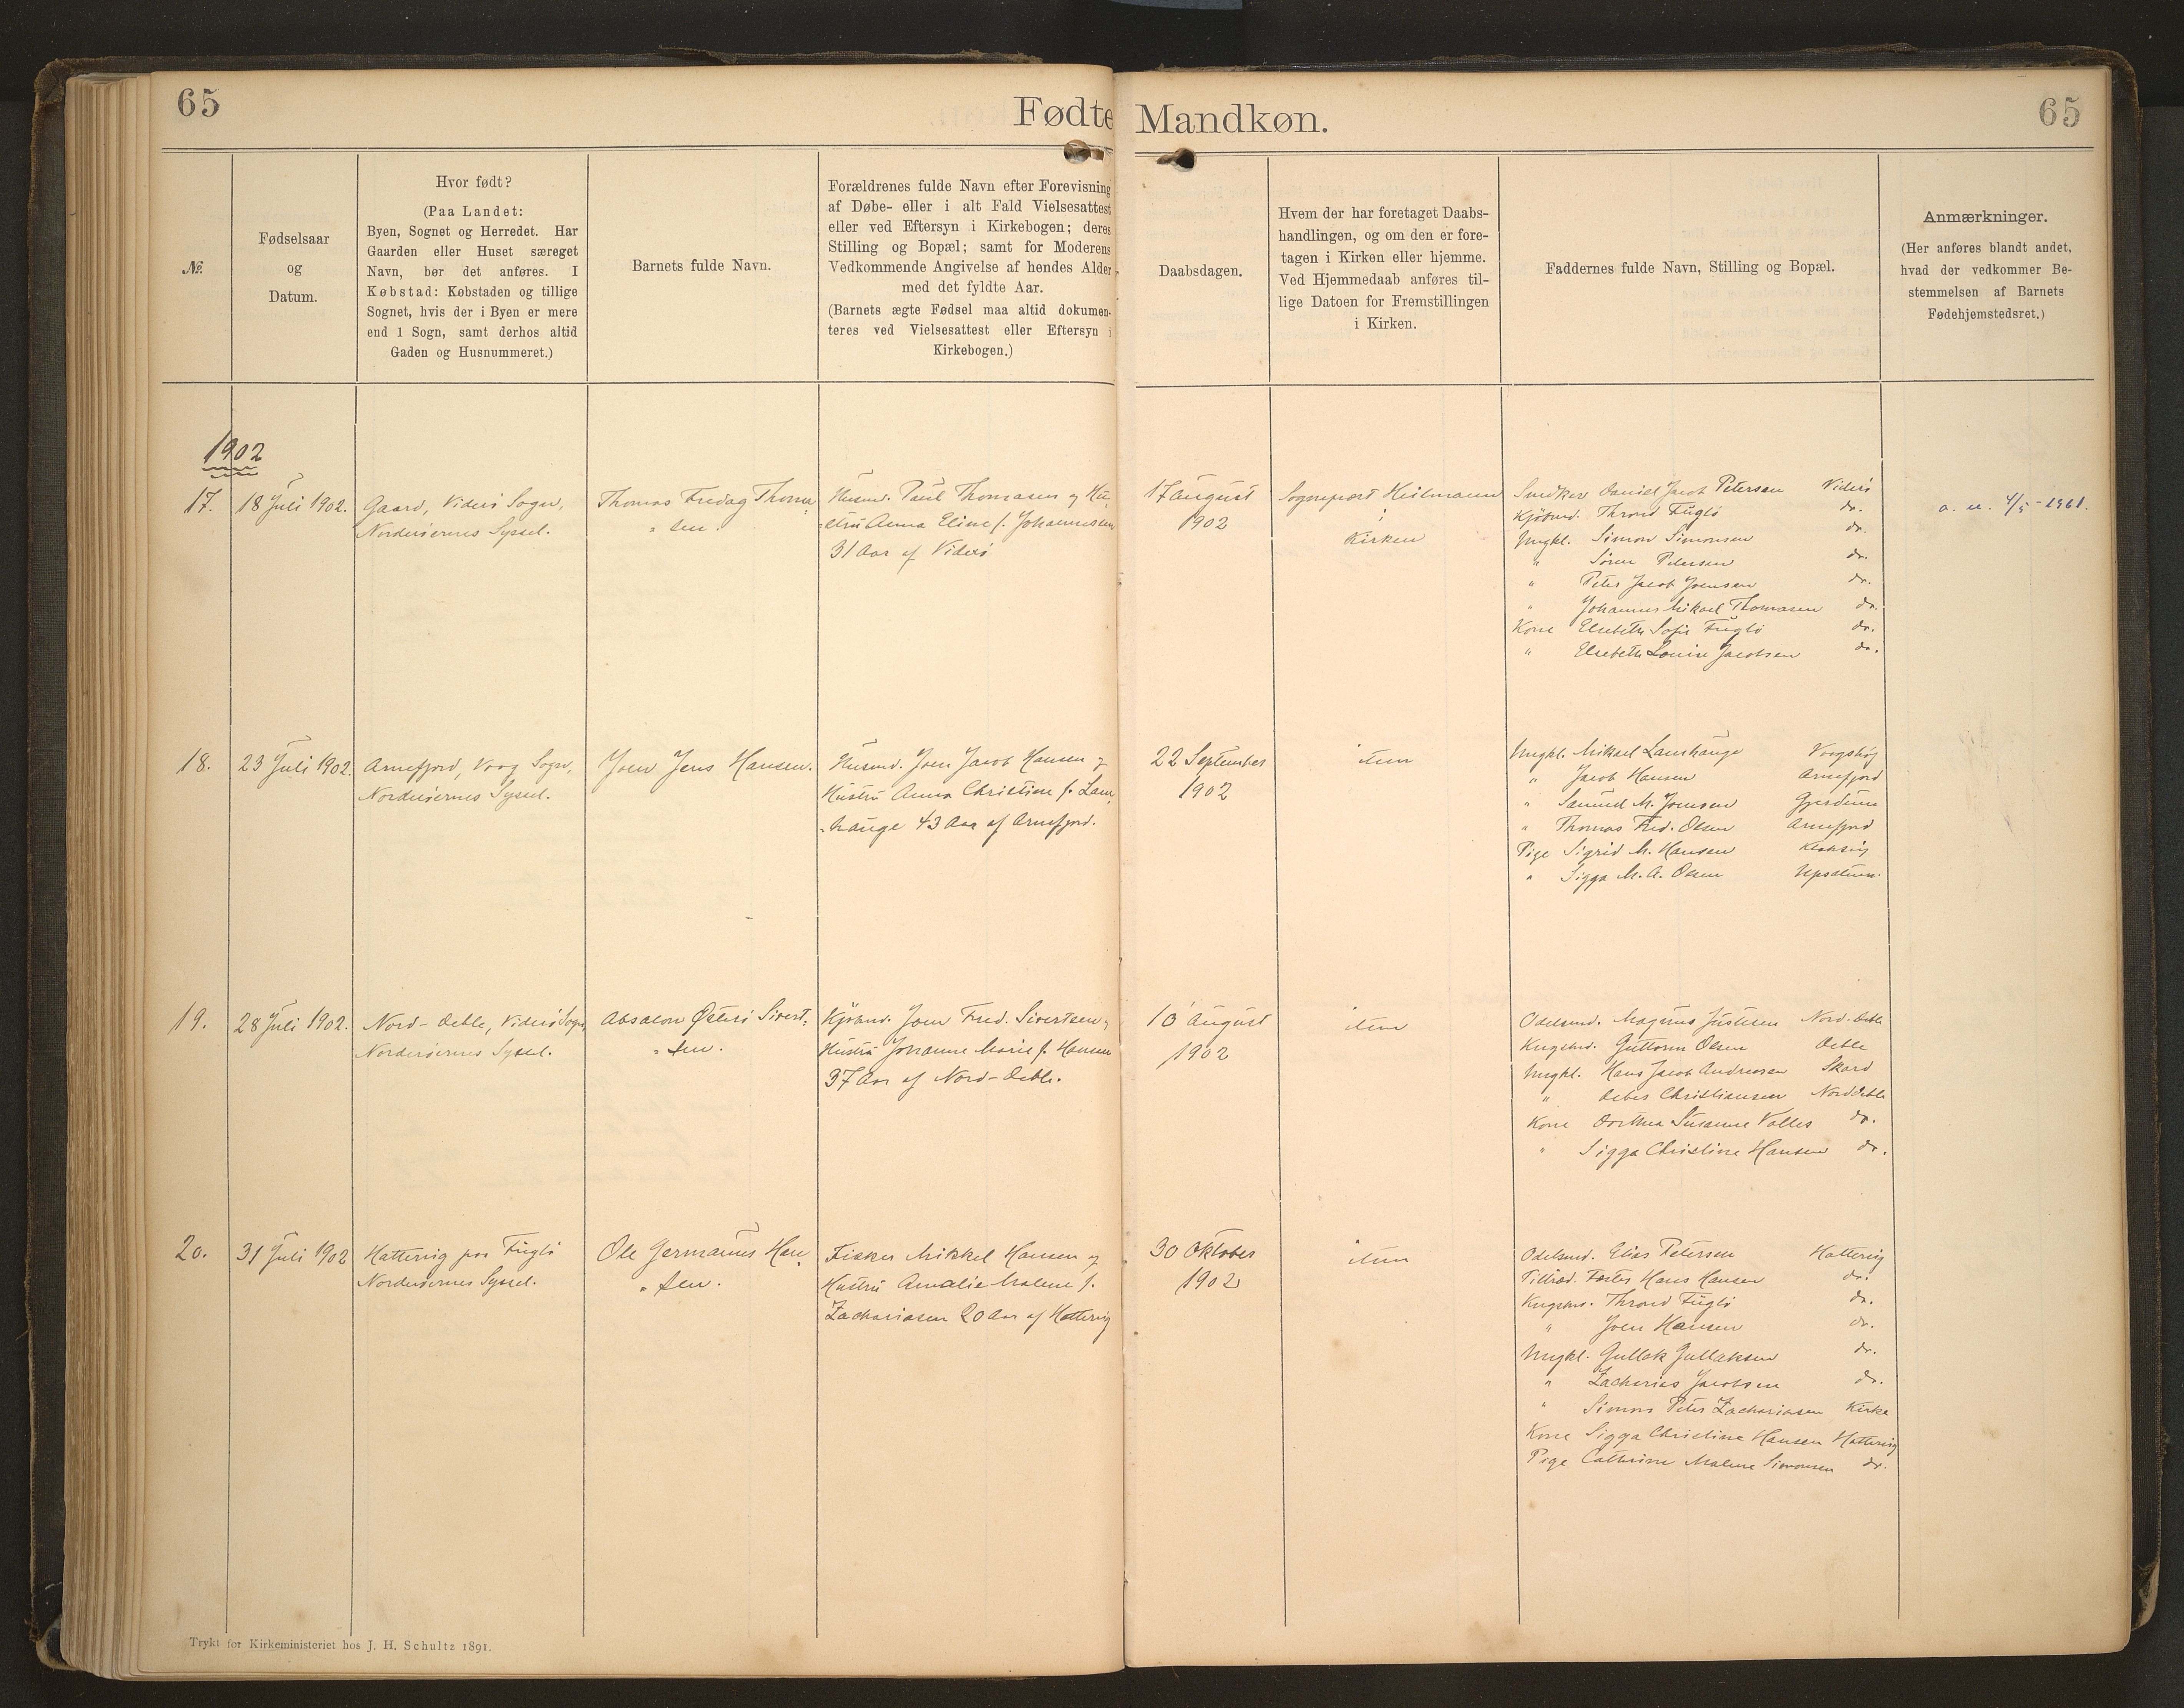 65
Fødte Mandkøn.
65
№
Fødselsaar
og
Datum.
Hvor født?
(Paa Landet:
Byen, Sognet og Herredet. Har
Gaarden eller Huset særeget
Navn, bør det anføres. I
Købstad: Købstaden og tillige
Sognet, hvis der i Byen er mere
end 1 Sogn, samt derhos altid
Gaden og Husnummeret.)
Barnets fulde Navn.
Forældrenes fulde Navn efter Forevisning
af Døbe- eller i alt Fald Vielsesattest
eller ved Eftersyn i Kirkebogen; deres
Stilling og Bopæl; samt for Moderens
Vedkommende Angivelse af hendes Alder
med det fyldte Aar.
(Barnets ægte Fødsel maa altid dokumen-
teres ved Vielsesattest eller Eftersyn i
Kirkebogen.)
Daabsdagen.
Hvem der har foretaget Daabs-
handlingen, og om den er fore-
tagen i Kirken eller hjemme.
Ved Hjemmedaab anføres til-
lige Datoen for Fremstillingen
i Kirken.
Faddernes fulde Navn, Stilling og Bopæl.
Anmærkninger.
(Her anføres blandt andet,
hvad der vedkommer Be-
stemmelsen af Barnets
Fødehjemstedsret.)
1902
17.
18 Juli 1902.
Gaard, Viderø Sogn,
Norderøernes Syssel.
Thomas Fredag Thoma-
-sen.
Husmd. Paul Thomasen og Hu-
-stru Anna Eline f. Johannesen
31 Aar af Viderø
17 August
1902
Sognepræst Heilmann
i
Kirken
Snedker Daniel Jacob Petersen Viderø
Kjøbmd. Thrond Fuglø do.
Ungkl. Simon Simonsen do.
" Sören Petersen do.
" Peter Jacob Joensen do.
" Johannes Mikael Thomasen do.
Kone Elsebeth Sofie Fuglø do.
" Elsebeth Louise Jacobsen do.
a. u. 4/5-1961.
18.
23 Juli 1902.
Arnefjord, Vaag Sogn,
Norderøernes Syssel.
Joen Jens Hansen.
Husmd. Joen Jacob Hansen og
Hustru Anna Christine f. Lam-
-hauge 43 Aar af Arnefjord.
22 September
1902
item
Ungkl. Mikael Lamhauge Vaagshøj
" Jacob Hansen Arnefjord
" Samuel M. Joensen Gjerdum
" Thomas Fred. Olsen Arnefjord
Pige Sigrid M. Hansen Klaksvig
" Sigga M. A. Olsen Upsalum.
19.
28 Juli 1902.
Nord-Deble, Viderø Sogn,
Norderøernes Syssel.
Absalon Østerø Sivert-
-sen.
Kjøbmd. Joen Fred. Sivertsen,
Hustru Johanne Marie f. Hansen
37 Aar af Nord-Deble.
10 August
1902
item
Odelsmd. Magnus Justesen Nord-Deble
Kngsbd. Guttorm Olsen Deble
Ungkl. Hans Jacob Andreasen Skard
" Debes Christiansen Norddeble
Kone Dorthea Susanne Valles do.
" Sigga Christine Hansen do.
20.
31 Juli 1902
Hattervig paa Fuglø
Norderøernes Syssel.
Ole Germanus Han-
-sen.
Fisker Mikkel Hansen og
Hustru Amalie Malene f.
Zachariasen 20 Aar af Hattervig
30 Oktober
1902
item
Odelsmd. Elias Petersen Hattervig
Hans Hansen do.
Kngsbd. Thrond Fuglø do.
" Joen Hansen do.
Ungkl. Gullak Gullaksen do.
" Zacharias Jacobsen do.
" Simon Peter Zachariasen Kirke
Kone Sigga Christine Hansen Hattervig
Pige Cathrine Malene Simonsen do.
Trykt for Kirkeministeriet hos J. H. Schultz 1891.